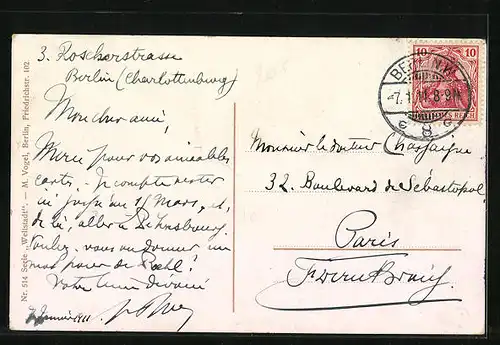 3. Roscherstrasse
Berlin (Charlottenburg)
Mon cher ami,
Merci pour vos aimables
cartes. Je compte rester
ici jusqu'au 15 Mars, et,
de là, aller à
Voulez-vous me donner un
mot pour de
Votre bien dévoué
7 Janvier 1911
Nr. 514 Serie "Weltstadt". — M. Vogel, Berlin, Friedrichstr. 102
10 10
BERLIN N.W.
-7.1.11.8-9N
DEUTSCHES REICH
8
Monsieur le docteur
32. Boulevard de Sébastopol
Paris